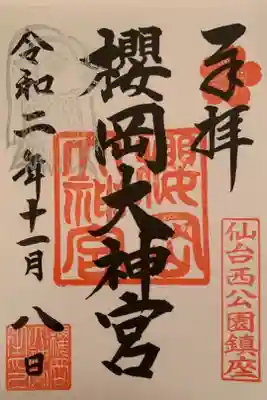 奉拝
櫻岡大神宮
令和二年十一月八日
仙台西公園鎮座
櫻岡大神宮